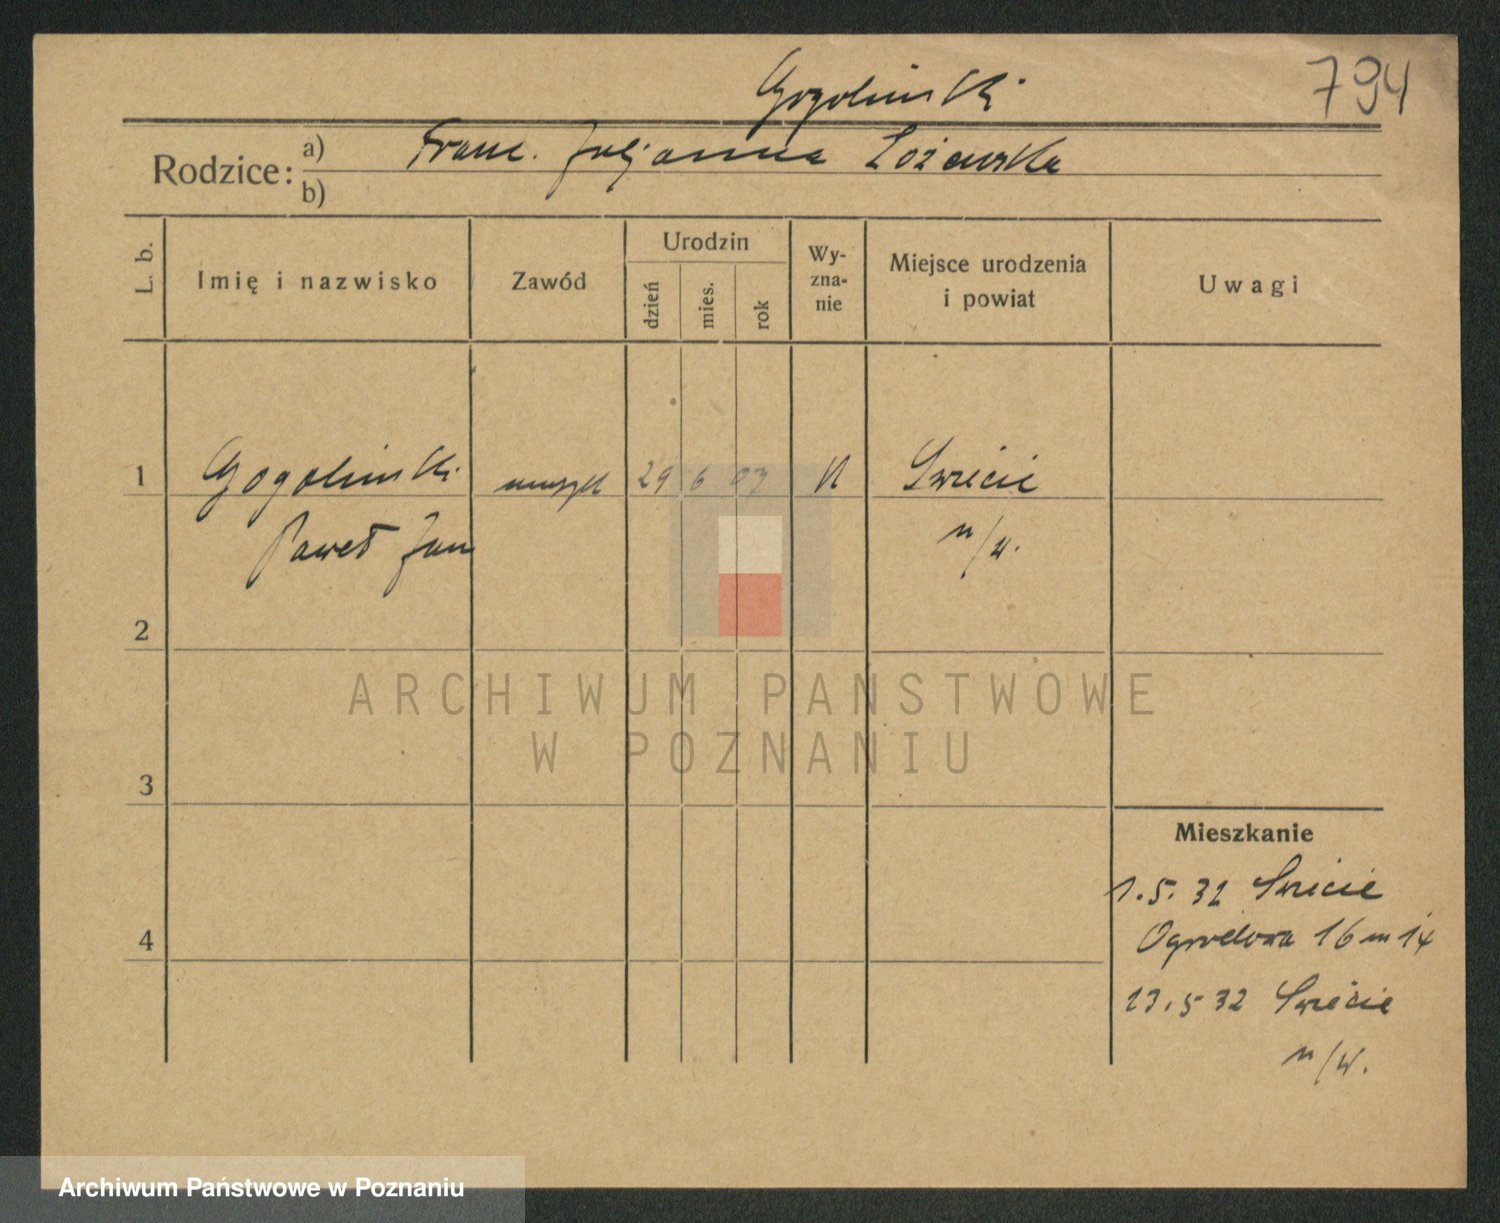 794
Gogoliński
Rodzice:
a) Franc. Juljanna Lożewska
b)
L. b.
Imię i nazwisko
Zawód
Urodzin
dzień
mies.
rok
Wy-
zna-
nie
Miejsce urodzenia
i powiat
Uwagi
1
Gogoliński
muzyk
29
6
07
K
Świecie
Paweł Jan
n/W.
2
ARCHIWUM PAŃSTWOWE
W POZNANIU
3
Mieszkanie
1.5.32 Świecie
4
Ogrodowa 16 m 14
23.5 32 Świecie
n/W.
Archiwum Państwowe w Poznaniu